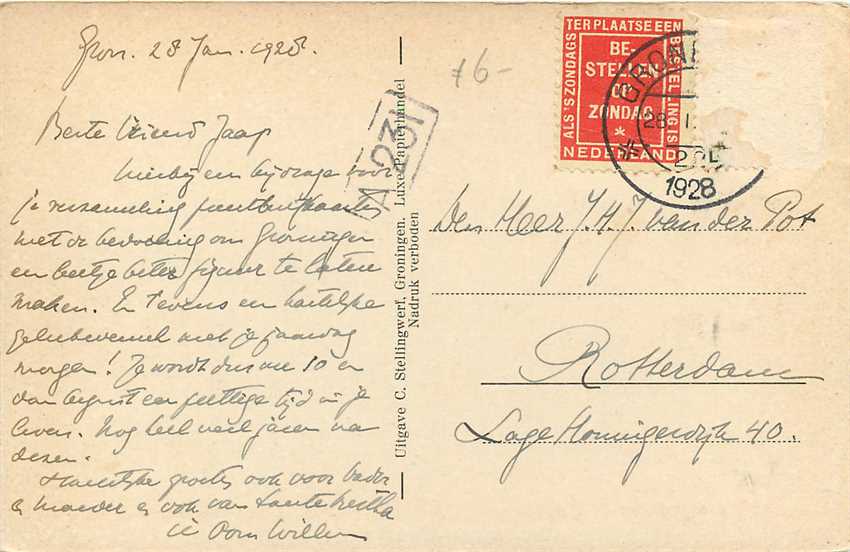 Gron. 28 Jan. 1928.
Beste Vriend Jaap
Hierbij een bijdrage voor
je verzameling prentbriefkaarten
met de bedoeling om Groningen
en beetje beter figuur te laten
maken. En tevens een hartelijke
gelukwensch met je jaardag
morgen! Je wordt dus nu 10 en
dan begint een prettige tijd in je
leven. Nog heel veel jaren na
dezen.
Hartelijke groeten ook voor vader
& moeder & ook van tante Bertha
Oom Willem
A 231
Uitgave C. Stellingwerf, Groningen. Luxe Papierhandel
Nadruk verboden
6-
ALS 'S ZONDAGS
TER PLAATSE EEN
BESTELLING IS
BE-
STELLEN
OP
ZONDAG
*
NEDERLAND
GRON
28 I
1928
Den Heer J. H. J. van der Pot
Rotterdam
Lage Honingerdijk 40.